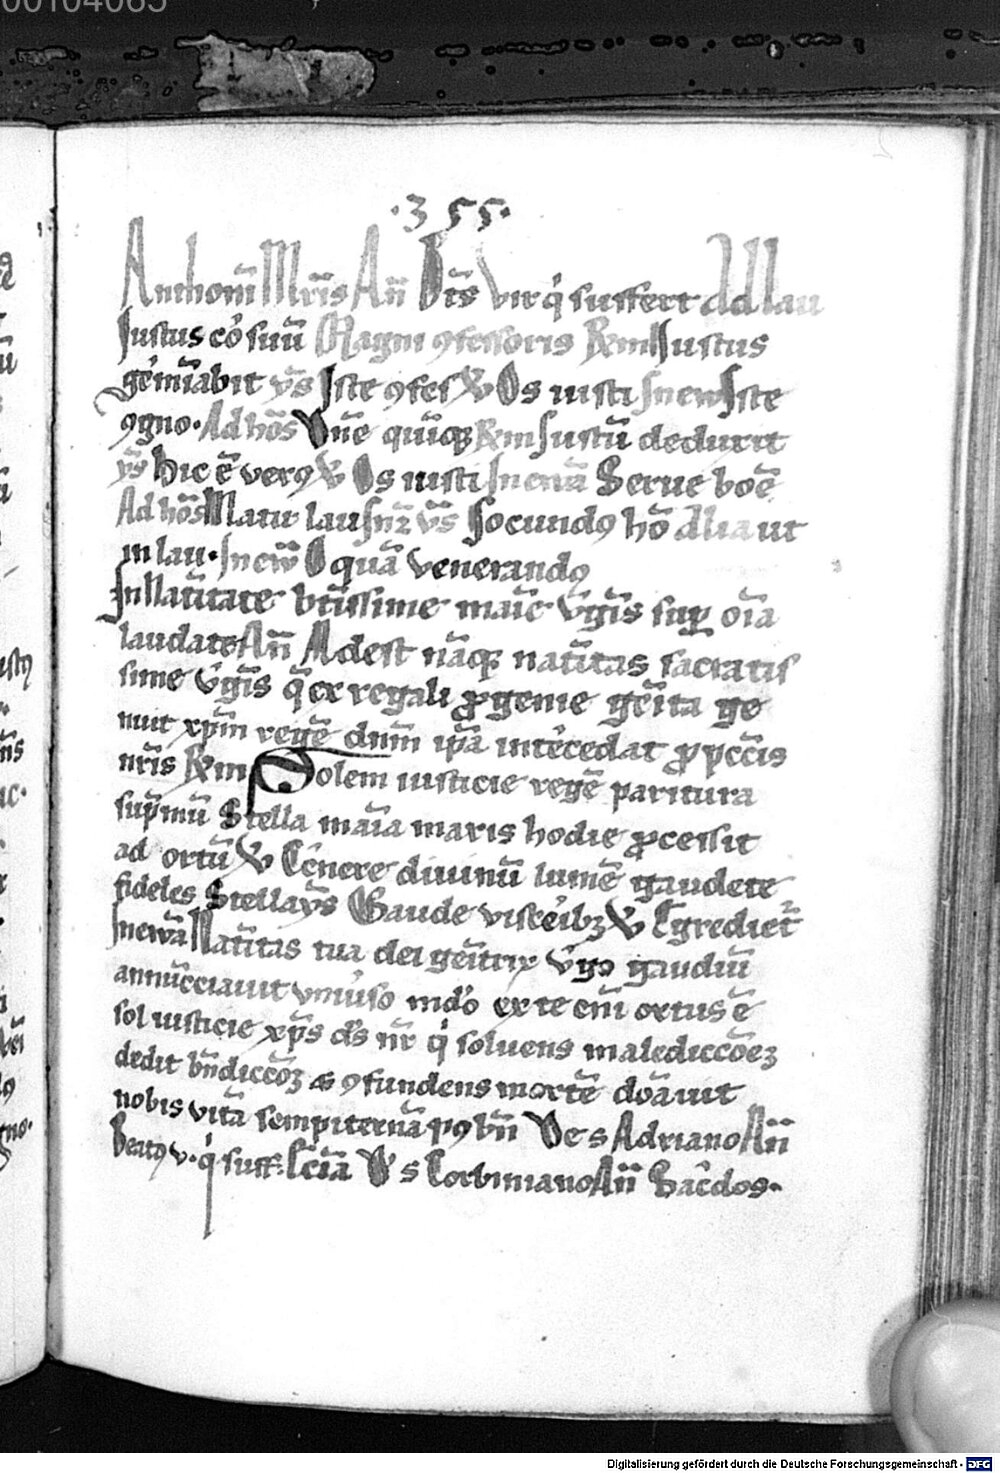 00104065
·355·
Anthonii Mr̄is An̄ Btūs vir q̇ suffert Ad lau
Justus cō suū Magni ꝯfessoris Rm̄ Justus
gēmīabit v̄s Iste ꝯfes W Os iusti In ew Iste
ꝯgno· Ad hōs Vnē quīqꝫ Rm̄ Justū deduxit
v̄s hic ē verꝯ W Os iusti In ewā Serue boē
Ad hōs Matur lau In z v̄s Jocundꝯ hō alia ut
in lau· In ew̄ O quā venerandꝯ
In Natīitate btīssime maīe v̄gīs suꝑ oīa
laudate An̄ Adest nāqꝫ natīitas sacratis
sime v̄gīs q̄ ex regali ꝓgenie geīta ge
nuit xp̄m regē dn̄m ip̄a intēcedat ꝓ pccīs
nr̄is Rm̄ Solem iusticie regē paritura
sup̄mū Stella maīa maris hodie ꝓcessit
ad ortū W Cernere diuinū lumē gaudete
fideles Stella v̄s Gaude viscēibꝫ W Egrediet᷑
In ewā Natīitas tua dei geītrix v̄go gaudiū
annūcciauit vniūso mdō ex te enī ortus ē
sol iusticie xp̄s ds̄ nr̄ q̇ soluens malediccōeꝫ
dedit bn̄diccōꝫ & ꝯfundens mortē dōauit
nobis vitā sempiternā pꝯ bn̄ De s Adriano An̄
Beatꝯ v· q̇ suff· Scīa D s Corbiniano An̄ Sac̄dos·
Digitalisierung gefördert durch die Deutsche Forschungsgemeinschaft - DFG